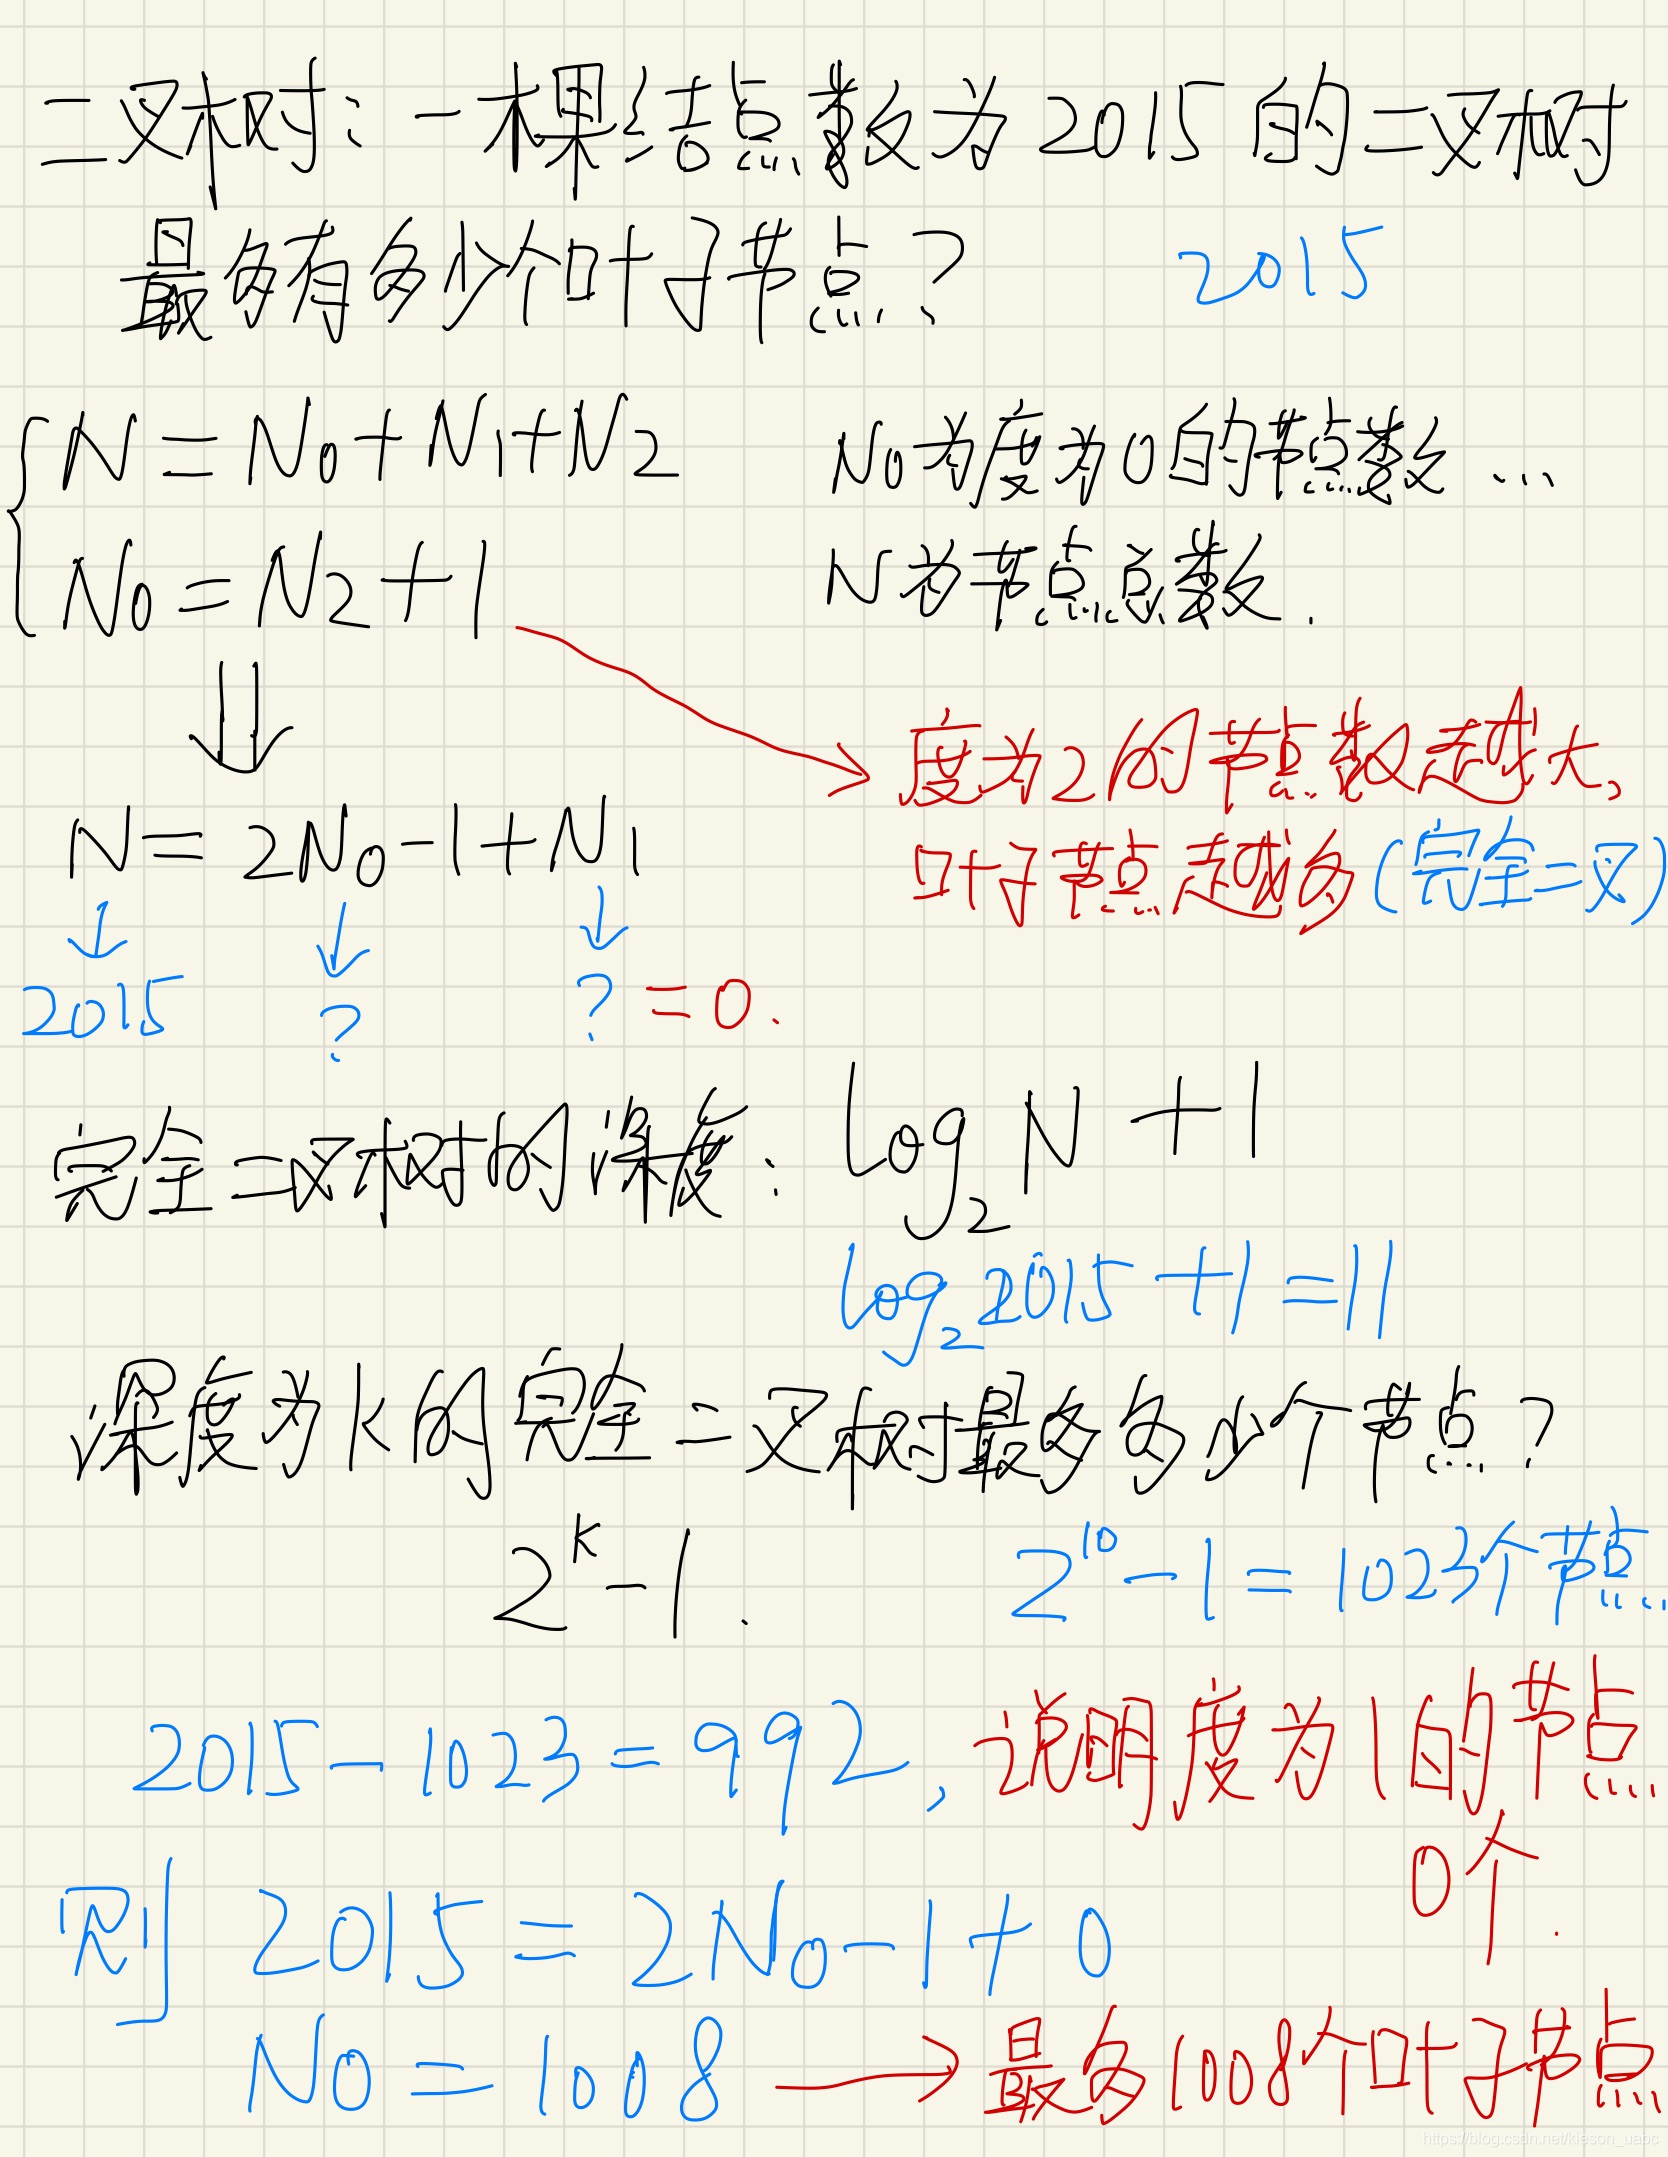 二叉树：一棵结点数为2015的二叉树
最多有多少个叶子节点？ 2015
N=N0+N1+N2 N0为度为0的节点数...
N0=N2+1 N为节点总数.
度为2的节点数越大,
N=2N0-1+N1
叶子节点越多(完全二叉)
2015 ? ?=0.
完全二叉树的深度：log₂N+1
log₂2015+1=11
深度为k的完全二叉树最多多少个节点？
2ᵏ-1. 2¹⁰-1=1023个节点
2015-1023=992, 说明度为1的节点
0个.
则 2015=2N0-1+0
N0=1008 → 最多1008个叶子节点
https://blog.csdn.net/kieson_uabc